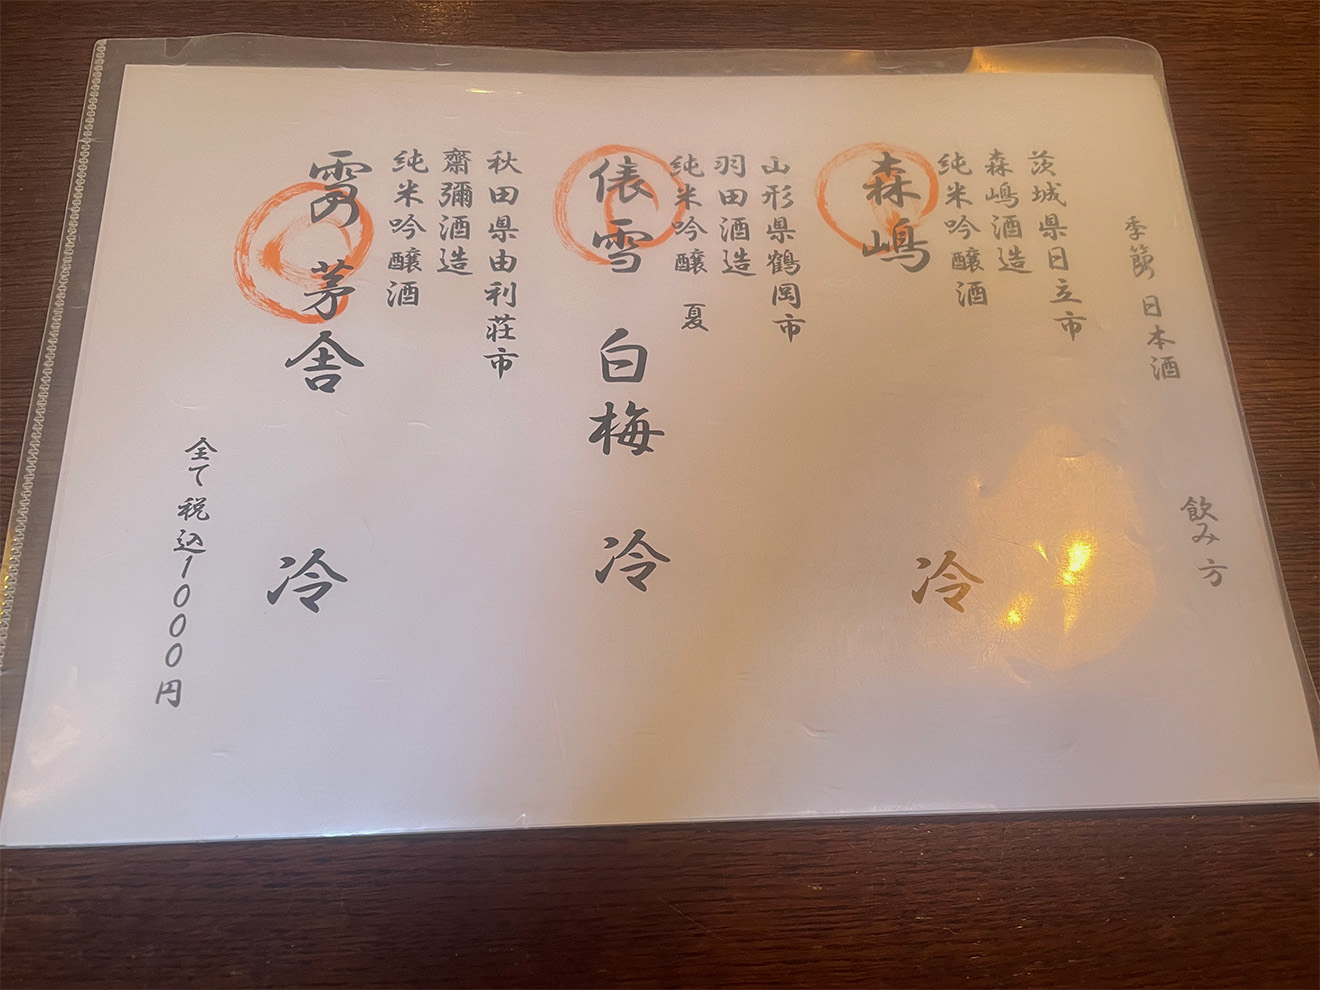 季節 日本酒
飲み方
茨城県日立市
森嶋酒造
純米吟醸酒
森嶋
冷
山形県鶴岡市
羽田酒造
純米吟醸 夏
俵雪 白梅
冷
秋田県由利荘市
齋彌酒造
純米吟醸酒
雪の茅舎
冷
全て税込1000円